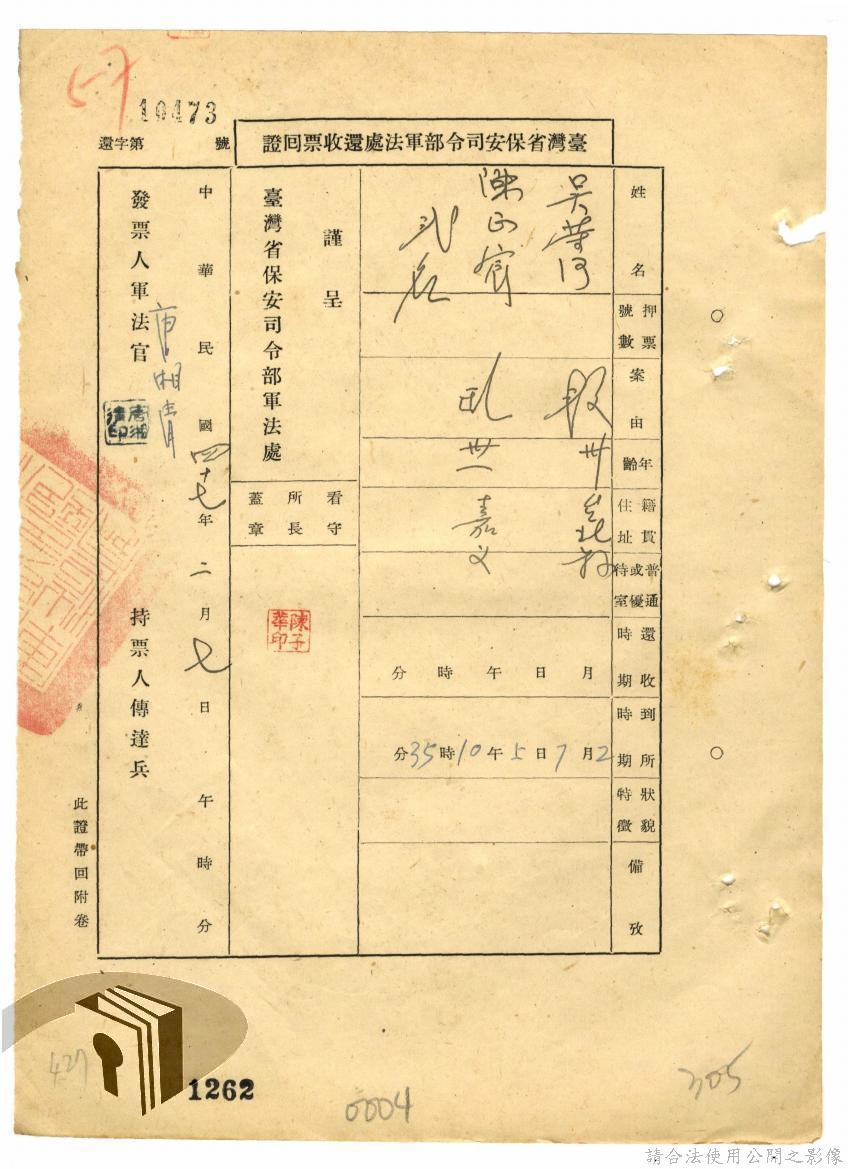 57
10473
臺灣省保安司令部軍法處還收票回證
還字第 號
姓名
吳
陳正宸
弍名
押票號數
案由
叛
亂
年齡
卅
卅一
籍貫住址
台北
嘉义
普通或優待室
還收時期
月 日 午 時 分
到所時期
2月7日 5午10時35分
狀貌特徵
備攷
謹呈
臺灣省保安司令部軍法處
看守所長蓋章
陳子華印
中華民國四十七年二月七日 午 時 分
發票人軍法官 唐湘清
唐湘清印
持票人傳達兵
此證帶回附卷
427
1262
0004
305
請合法使用公開之影像